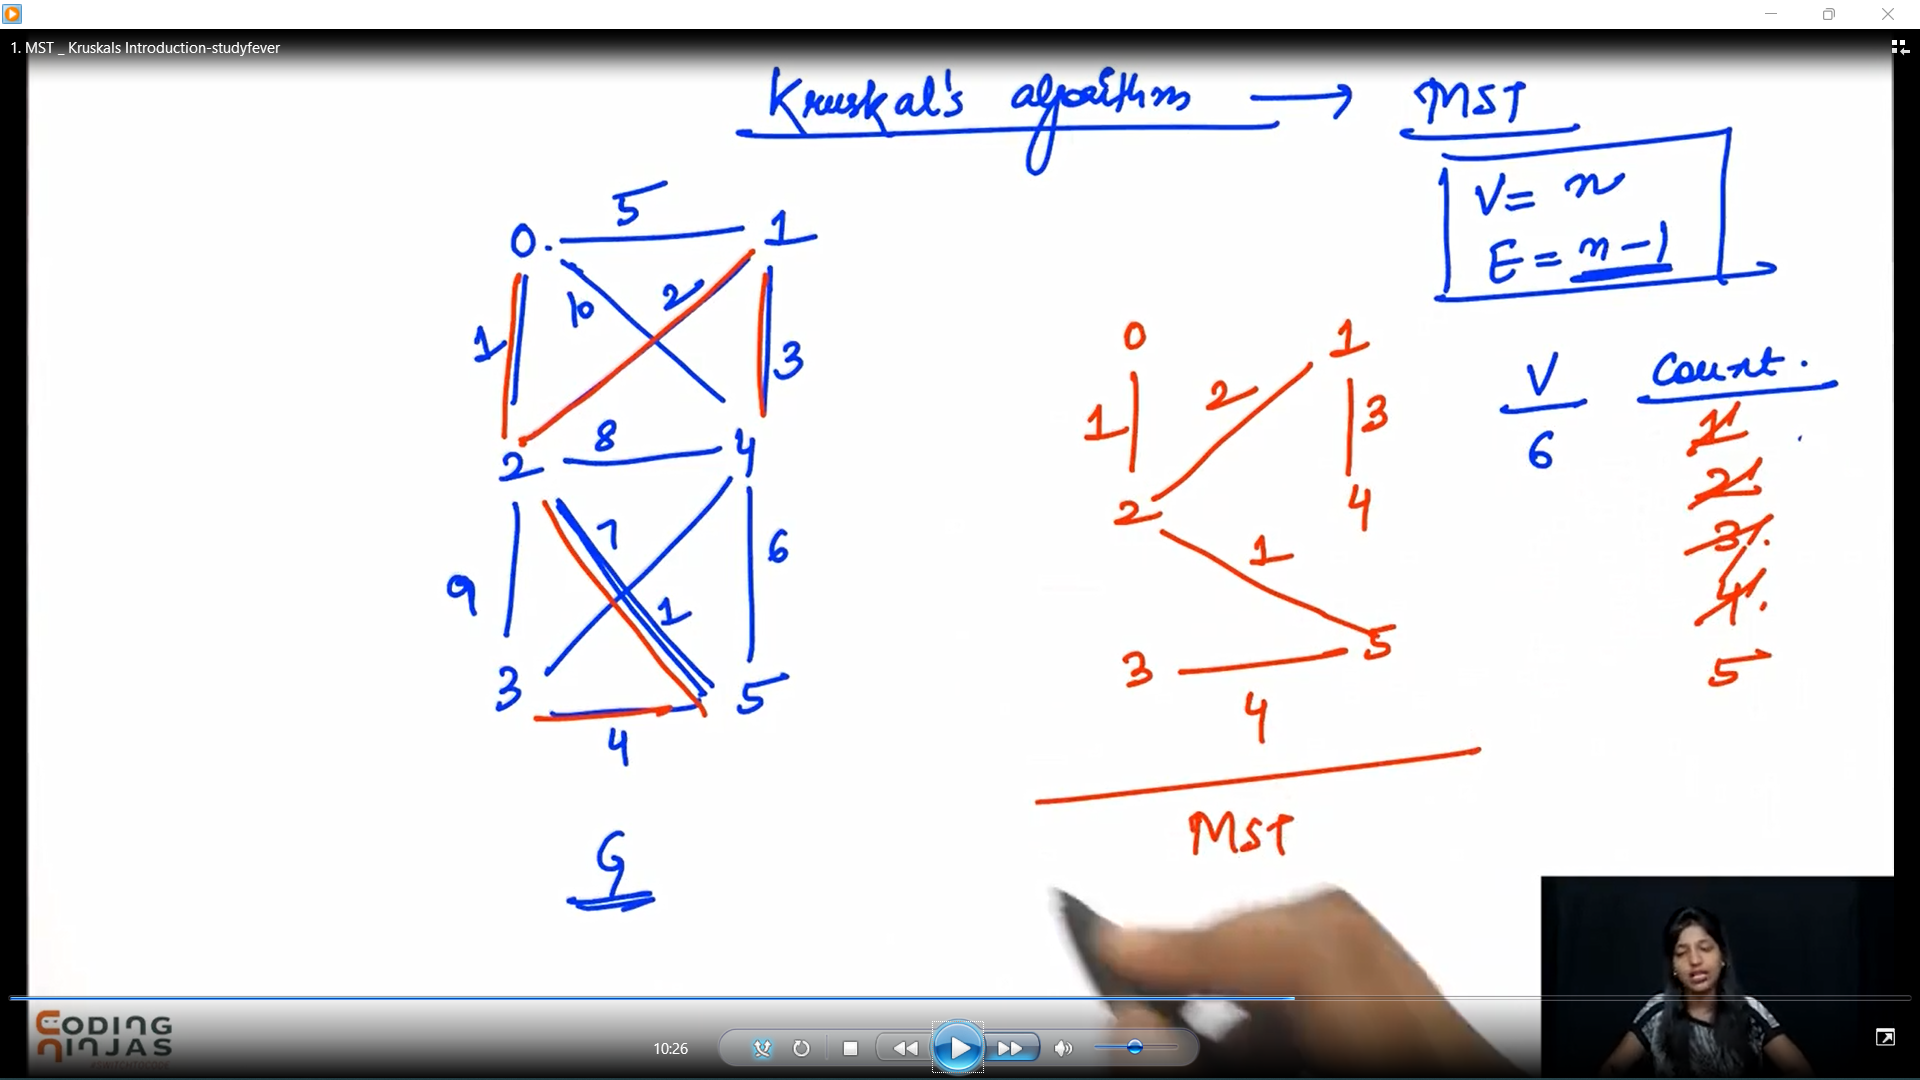 1. MST _ Kruskals Introduction-studyfever
Kruskal's algorithm → MST
V = n
E = n-1
5
0. 1
10 2
1 3
8
2 4
7
9 1 6
3 5
4
G
0 1
1 2 3
2 4
1
3 5
4
MST
V Count.
6 1
2
3
4
5
CODING
NINJAS
#SWITCHTOCODE
10:26